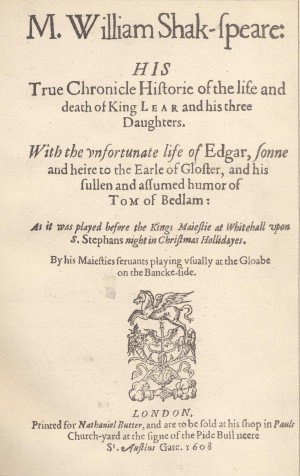 M. William Shak-ſpeare:
HIS
True Chronicle Hiſtorie of the life and
death of King LEAR and his three
Daughters.
With the vnfortunate life of Edgar, ſonne
and heire to the Earle of Gloſter, and his
ſullen and aſſumed humor of
TOM of Bedlam:
As it was played before the Kings Maieſtie at Whitehall vpon
S. Stephans night in Chriſtmas Hollidayes.
By his Maieſties ſeruants playing vſually at the Gloabe
on the Bancke-ſide.
LONDON,
Printed for Nathaniel Butter, and are to be ſold at his ſhop in Pauls
Church-yard at the ſigne of the Pide Bull neere
Sᵗ. Auſtins Gate. 1608